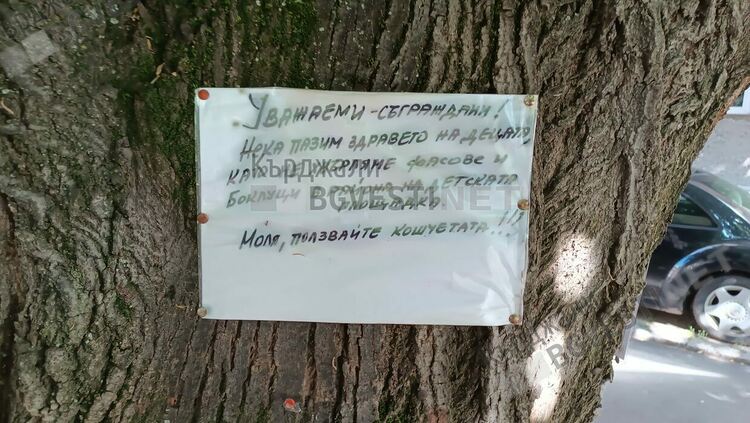 Уважаеми съграждани!
Нека пазим здравето на децата,
като не хвърляме фасове и
боклуци в района на детската
площадка
Моля, ползвайте кошчетата!!!
Кърджали
BGVESTI.NET